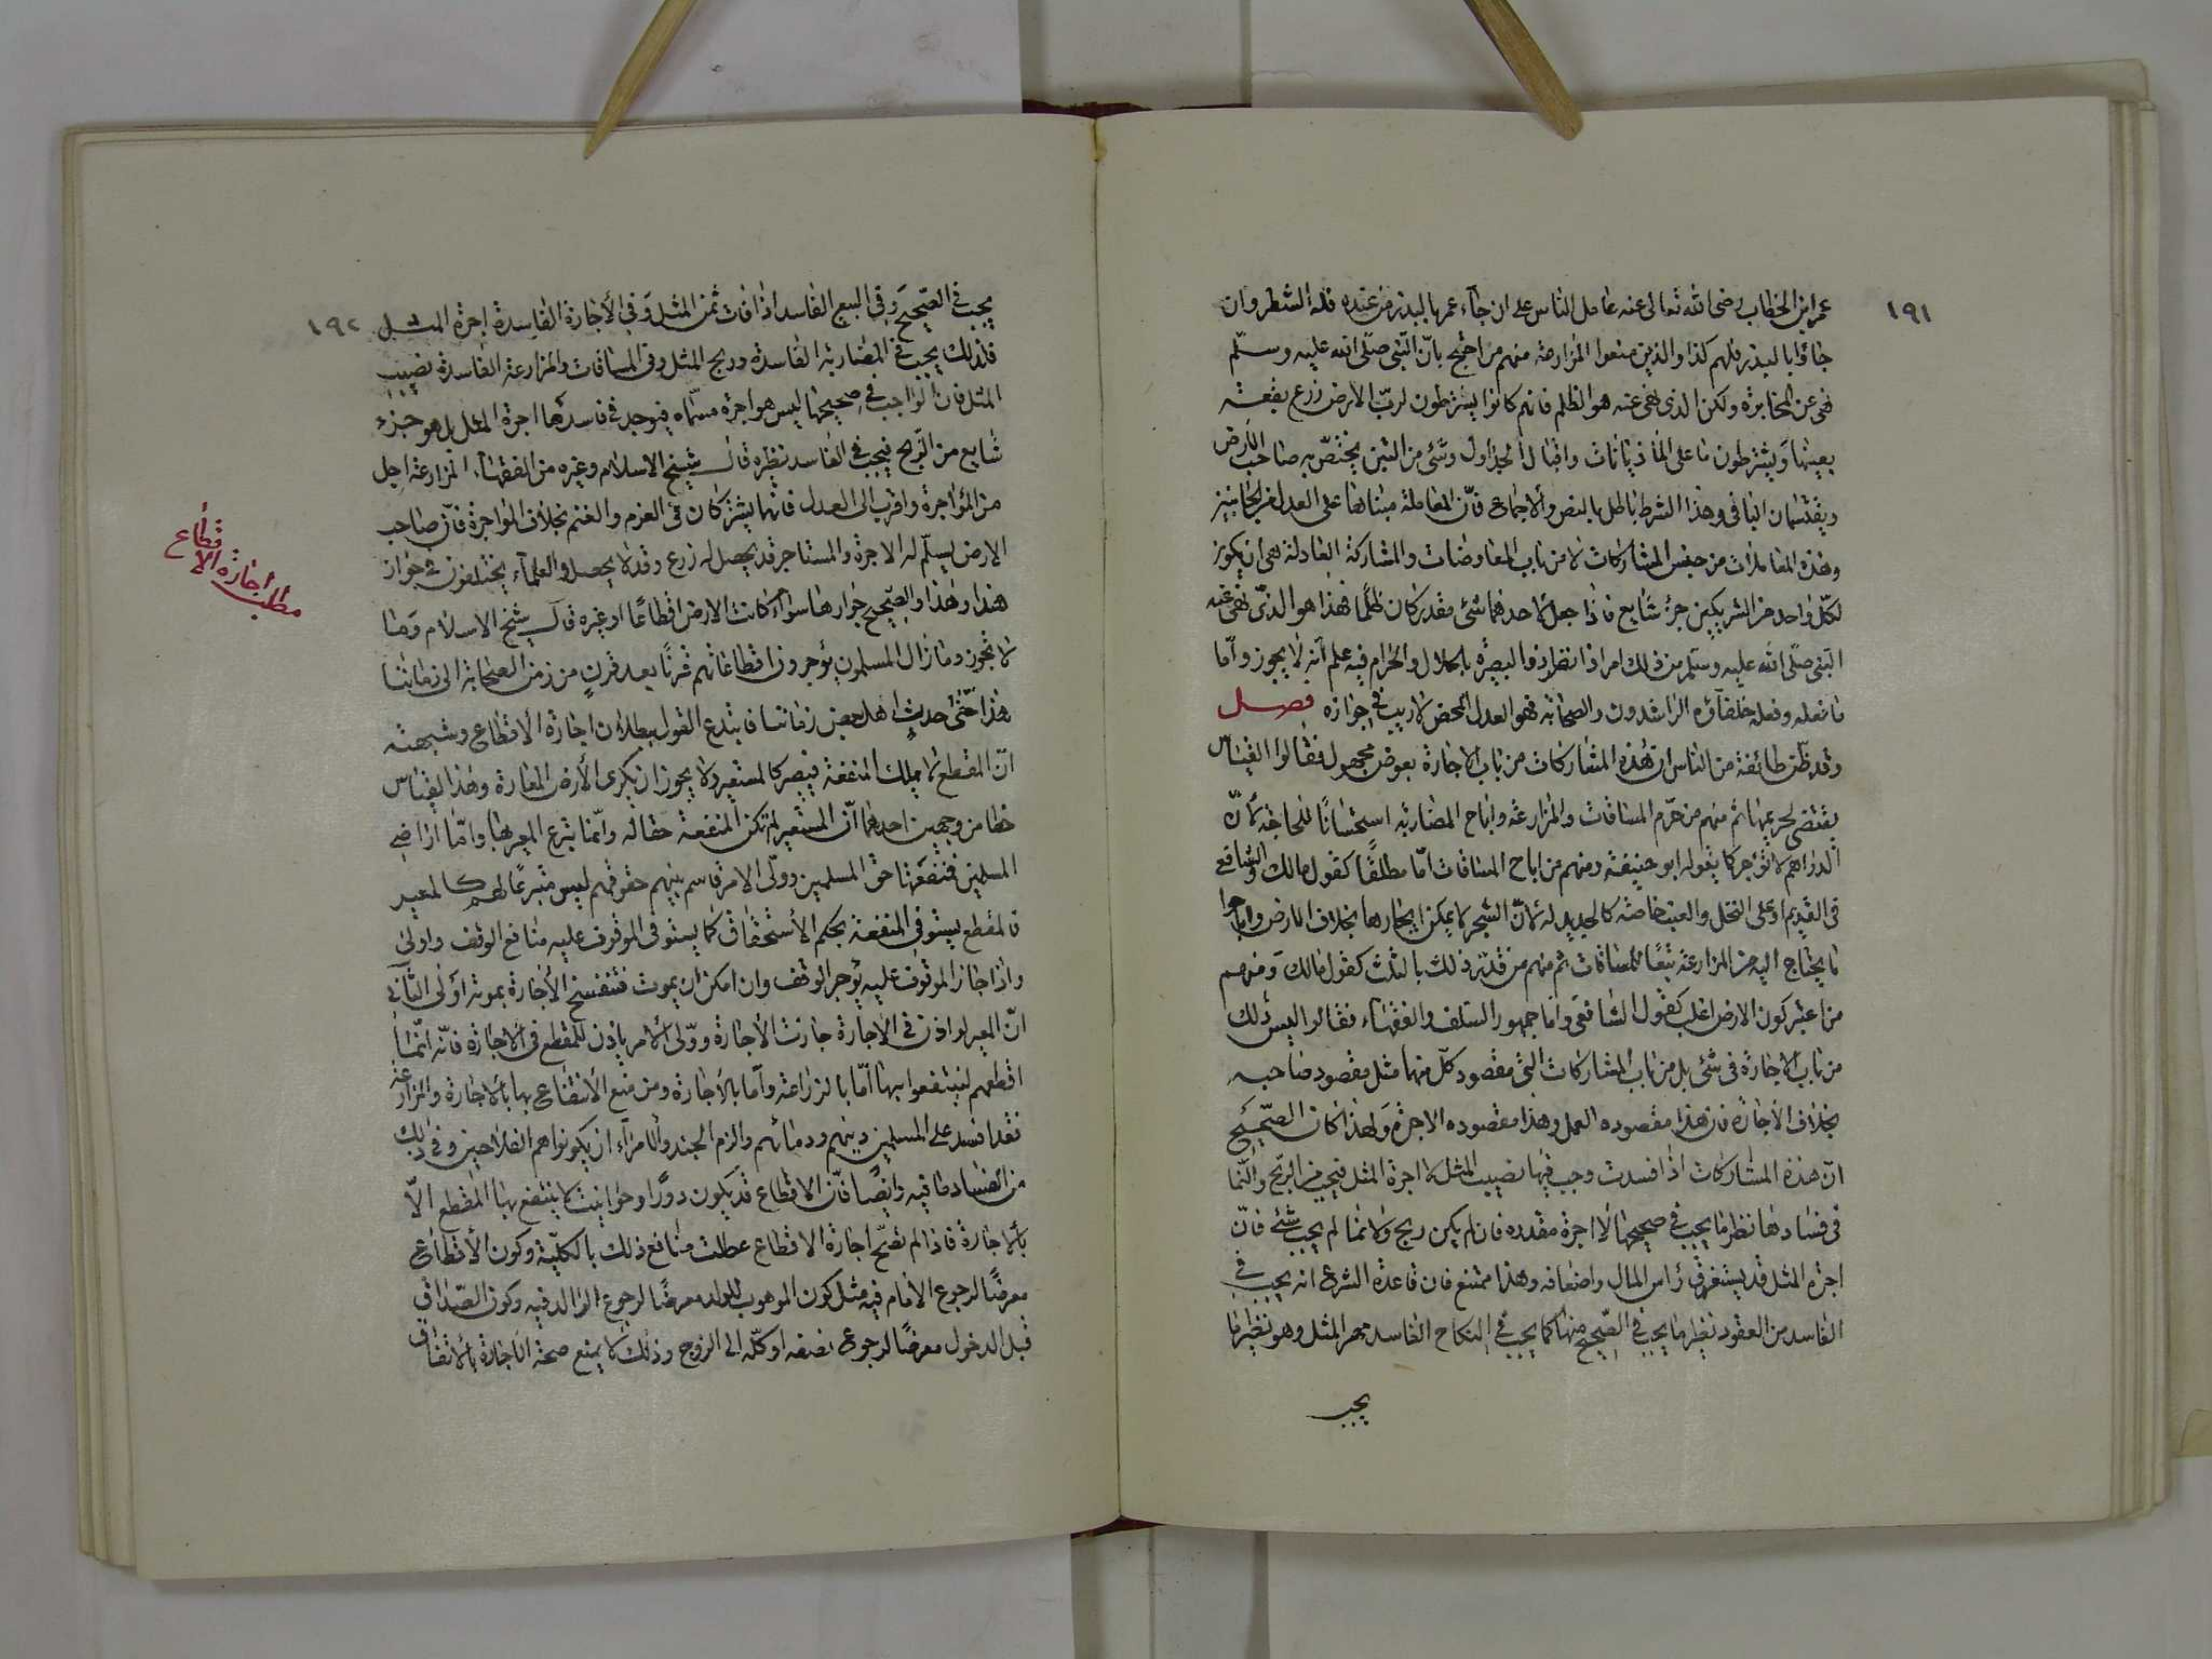 ١٩١
عمر ابن الخطاب رضى الله تعالى عنه عامل الناس على ان جآء عمر بالبذر من عنده فله الشطر وان
جاؤا بالبذر فلهم كذا والذين منعوا المزارعة منهم من احتج بانّ النبى صلّى الله عليه وسلّم
نهى عن المخابرة ولكن الذى نهى عنه هو الظلم فانهم كانوا يشترطون لربّ الارض زرع بقعة
بعينها ويشترطون ما على الماذيانات واقبال الجداول وشئ من التبن يختصّ به صاحب الارض
ويقتسمان الباقى وهذا الشرط باطل بالنص والاجماع فانّ المعاملة مبناها على العدل من الجانبين
وهذه المعاملات من جنس المشاركات لا من باب المعاوضات والمشاركة العادلة هى ان يكون
لكلّ واحد من الشريكين جزء شايع فاذا جعل لاحدهما شئ مقدر كان ظلمًا فهذا هو الذى نهى عنه
النبى صلّى الله عليه وسلم من ذلك امر اذا نظر ذو البصيرة بالحلال والحرام فيه علم انه لا يجوز وامّا
ما فعله وفعله خلفآؤه الراشدون والصحابة فهو العدل المحض لا ريب فى جوازه فصل
وقد ظنّ طائفة من الناس ان هذه المشاركات من باب الاجارة بعوض مجهول فقالوا القياس
يقتضى تحريمها ثم منهم من حرّم المساقات والمزارعة واباح المضاربة استحسانًا للحاجة لانّ
الدراهم لا تؤجر كما يقوله ابو حنيفة ومنهم من اباح المساقات امّا مطلقًا كقول مالك والشافعى
فى القديم او على النخل والعنب خاصة كالجديد له لانّ الشجر لا يمكن ايجارها بخلاف الارض واباحوا
ما يحتاج اليه من المزارعة تبعًا للمساقات ثم منهم من قدّر ذلك بالثلث كقول مالك ومنهم
من اعتبر كون الارض اغلب كقول الشافعى واما جمهور السلف والفقهاء فقالوا ليس ذلك
من باب الاجارة فى شئ بل من باب المشاركات التى مقصود كلّ منهما مثل مقصود صاحبه
بخلاف الاجارة فان هذا مقصوده العمل وهذا مقصوده الاجرة ولهذا كان الصّحيح
انّ هذه المشاركات اذا فسدت وجب فيها نصيب المثل لا اجرة المثل فيجب من الربح والنّما
فى فسادها نظير ما يجب فى صحيحها لا اجرة مقدره فان لم يكن ربح ولا نما لم يجب شئ فانّ
اجرة المثل قد يستغرق رأس المال واضعافه وهذا ممتنع فان قاعدة الشرع انه يجب فى
الفاسد من العقود نظير ما يجب فى الصّحيح منها كما يجب فى النكاح الفاسد مهر المثل وهو نظير ما
يجب
١٩٢
يجب فى الصّحيح وفى البيع الفاسد اذا فات ثمن المثل وفى الاجارة الفاسدة اجرة المثل
فلذلك يجب فى المضاربة الفاسدة وربح المثل وفى المساقات والمزارعة الفاسدة نصيب
المثل فان الواجب فى صحيحها ليس هو اجرة مسمّاه فيوجد فى فاسدها اجرة المثل بل هو جزء
شايع من الربح فيجب فى الفاسد نظيره قال شيخ الاسلام وغيره من الفقهاء المزارعة احل
من المؤاجرة واقرب الى العدل فانهما يشتركان فى الغرم والغنم بخلاف المؤاجرة فان صاحب
الارض يسلّم له الاجرة والمستاجر قد يحصل له زرع وقد لا يحصل والعلماء يختلفون فى جواز
هذا وهذا والصّحيح جوازهما سواء كانت الارض اقطاعًا او غيره قال شيخ الاسلام وما
لا تجوز وما زال المسلمون يؤجرون اقطاعاتهم قرنًا بعد قرنٍ من زمن الصحابة الى زماننا
هذا حتى حدث اهل بعض زماننا فابتدع القول ببطلان اجارة الاقطاع وشبهته
انّ المقطع لا يملك المنفعة فيصير كالمستعير ولا يجوز ان يكرى الارض المعارة وهذا القياس
خطا من وجهين احدهما انّ المستعير لم تكن المنفعة حقا له وانّما تبرع المعير بها وامّا اراضى
المسلمين فمنفعتها حق المسلمين وولّى الامر قاسم بينهم حقوقهم ليس متبرعًا لهم كالمعير
فالمقطع يستوفى المنفعة بحكم الاستحقاق كما يستوفى الموقوف عليه منافع الوقف واولى
واذا جاز الموقوف عليه يؤجر الوقف وان امكن ان يموت فتنفسخ الاجارة بموته اولى الثانى
انّ المعير لو اذن فى الاجارة جازت الاجارة وولّى الامر ياذن للمقطع فى الاجارة فانّه انّما
اقطعهم لينتفعوا بها امّا بالزراعة وامّا بالاجارة ومن منع الانتفاع بها بالاجارة والمزارعة
فقد افسد على المسلمين دينهم ودنيائهم والزم الجند والامرآء ان يكونوا هم الفلاحين وفى ذلك
من الفساد ما فيه وايضًا فانّ الاقطاع قد يكون دورًا وحوانيت لا ينتفع بها المقطع الّا
بالاجارة فاذا لم تصّح اجارة الاقطاع عطلت منافع ذلك بالكليّة وكون الاقطاع
معرضًا لرجوع الامام فيه مثل كون الموهوب للولد معرضًا لرجوع الوالد فيه وكون الصّداق
قبل الدخول معرضًا لرجوع نصفه او كلّه الى الزوج وذلك لا يمنع صحة الاجارة بالاتفاق
مطلب اجارة الاقطاع